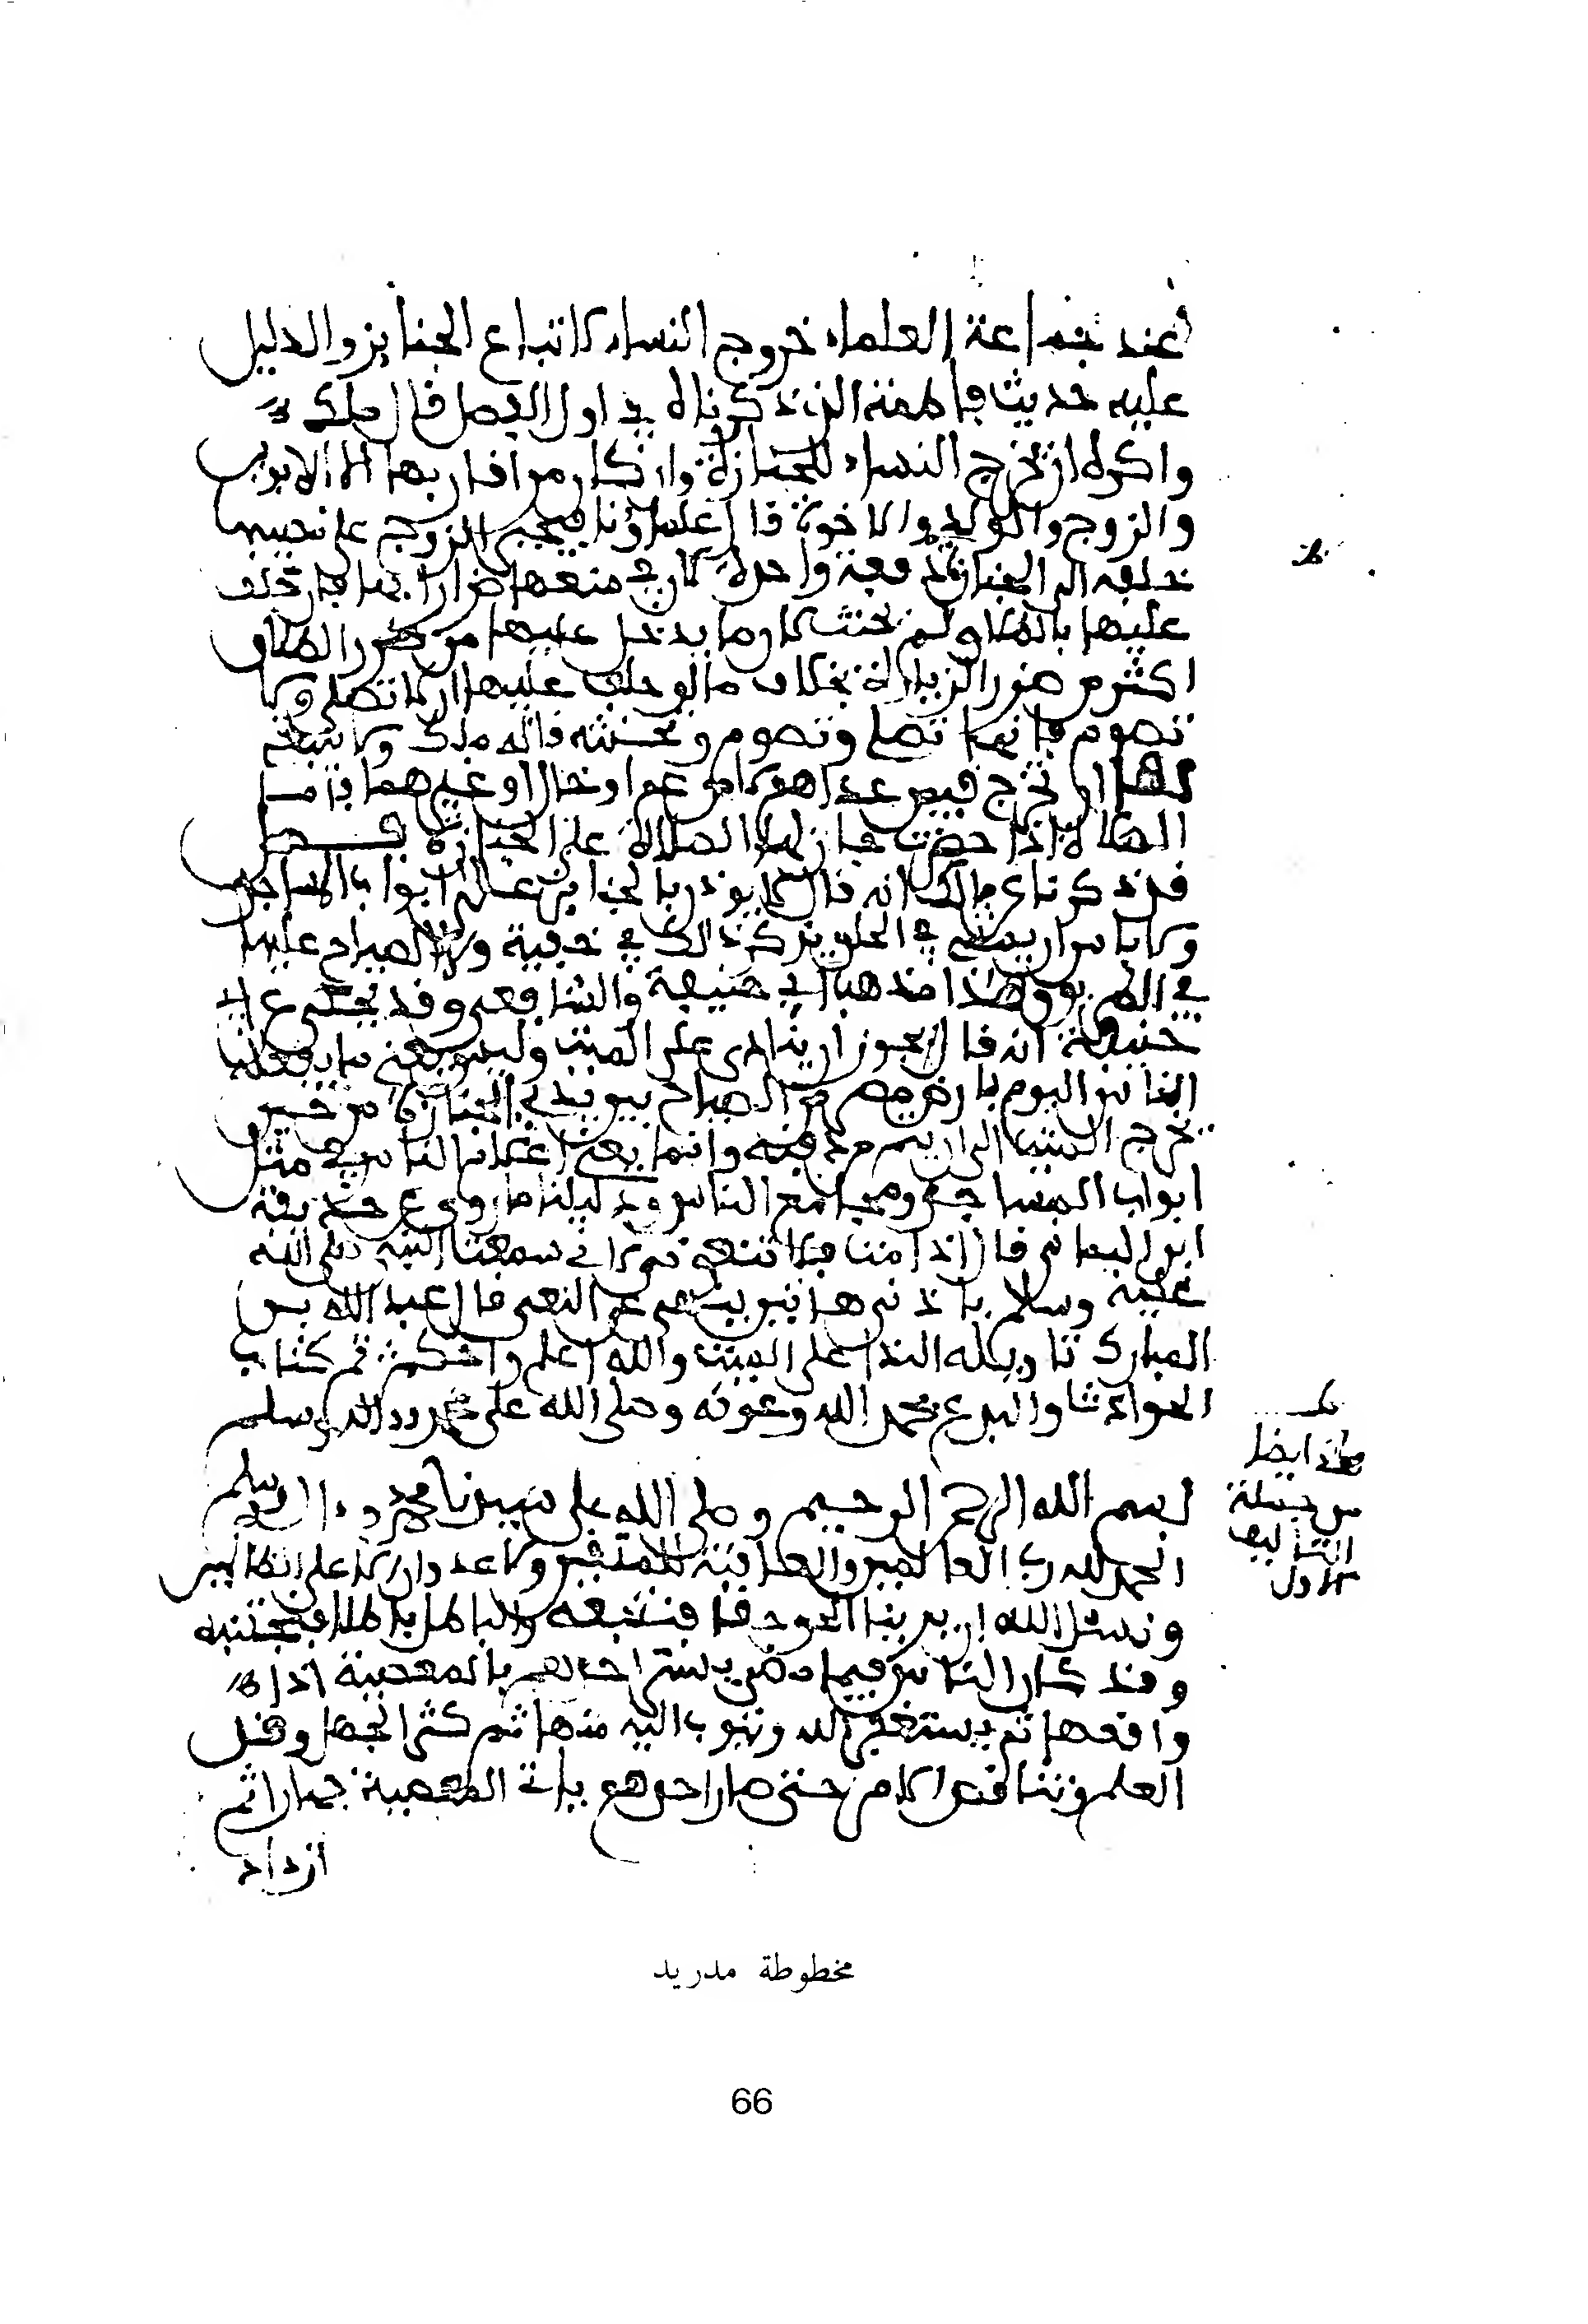 عند جماعة العلماء خروج النساء لاتباع الجنايز والدليل
عليه حديث فاطمة الذي ذكرناه في اول الفصل قال ملك
واكره ان تخرج النساء للجنازة وان كان من اقاربها الا الابوين
والزوج والولد والاخوة قال علماؤنا الزوج على
الى الجنازة دفعة واحدة كان في منعها ضرارا بها فان حلف
عليها بالطلاق لم يحنث لان ما يدخل عليها من ضرر الطلاق
اكثر من ضرر الزيارة بخلاف ما لو حلف عليها ان لا تصلي ولا
تصوم فانها تصلي وتصوم وتحنثه قاله ملك ولا ينبغي
لها ان تخرج فيمن عدا هولاء من عم او خال او غيرهما فاما
الصلاة اذا حضرت جاز لها الصلاة على الجنازة فصل
قد ذكرنا عن مالك انه قال لا يوذن بالجنايز على ابواب المساجد
ولا باس ان يمشي في الحلق يذكر ذالك في خفية ولا الصياح عليها
في الطريق وهذا مذهب ابي حنيفة والشافعي وقد يحكى عن ابي
حنيفة انه قال يجوز ان ينادى على الميت وليس يعني ما يفعله
الناس اليوم بارض مصر من الصياح بين يدي الجنازة من حين
تخرج الميت الى ان يسر من دفنه وانما يعني اعلام الناس في مثل
ابواب المساجد ومجامع الناس ودليلنا ما روي عن حذيفة
ابن اليمان قال اذا مت فلا تنعوني فاني سمعت النبي صلى الله
عليه وسلم باذني هاتين ينهى عن النعي قال عبد الله بن
المبارك تاويله الندا على الميت والله اعلم واحكم ثم كتاب
الحوادث والبدع بحمد الله وعونه وصلى الله على محمد واله وسلم
هذا ايضا
من جملة
التاليف
الاول
بسم الله الرحمن الرحيم وصلى الله على سيدنا محمد واله وسلم
الحمد لله رب العالمين والعاقبة للمتقين ولا عدوان الا على الظالمين
ونسئل الله ان يرينا الحق حقا فنتبعه والباطل باطلا فنجتنبه
وقد كان الناس فيما مضى يستتر احدهم بالمعصية اذا
واقعها ثم يستغفر الله ويتوب اليه منها ثم كثر الجهل وقل
العلم وتناقص الامر حتى صار احدهم ياتي المعصية جهارا ثم
ازداد
مخطوطة مدريد
66